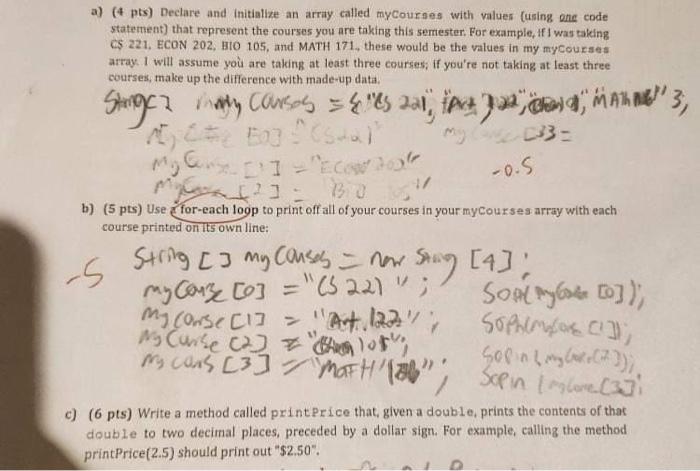 a) (4 pts) Declare and initialize an array called myCourses with values (using one code
statement) that represent the courses you are taking this semester. For example, if I was taking
CS 221, ECON 202, BIO 105, and MATH 171, these would be the values in my myCourses
array. I will assume you are taking at least three courses; if you're not taking at least three
courses, make up the difference with made-up data.
String[] my Courses = {"CS 221", "Art 122", "MATH 3;
[0] = "CS221" My [3] =
My [1] = "ECON 202"
My [2] = BIO
-0.5
b) (5 pts) Use a for-each loop to print off all of your courses in your myCourses array with each
course printed on its own line:
-5
String [] my Courses = new String [4];
my Course [0] = "CS 221"; SOPln [0]);
My course [1] = "Art 122"; SOPln [1]);
My Course [2] = 105"; SOPln [2]);
My [3] = "MATH SOPln [3];
c) (6 pts) Write a method called printPrice that, given a double, prints the contents of that
double to two decimal places, preceded by a dollar sign. For example, calling the method
printPrice(2.5) should print out "$2.50".